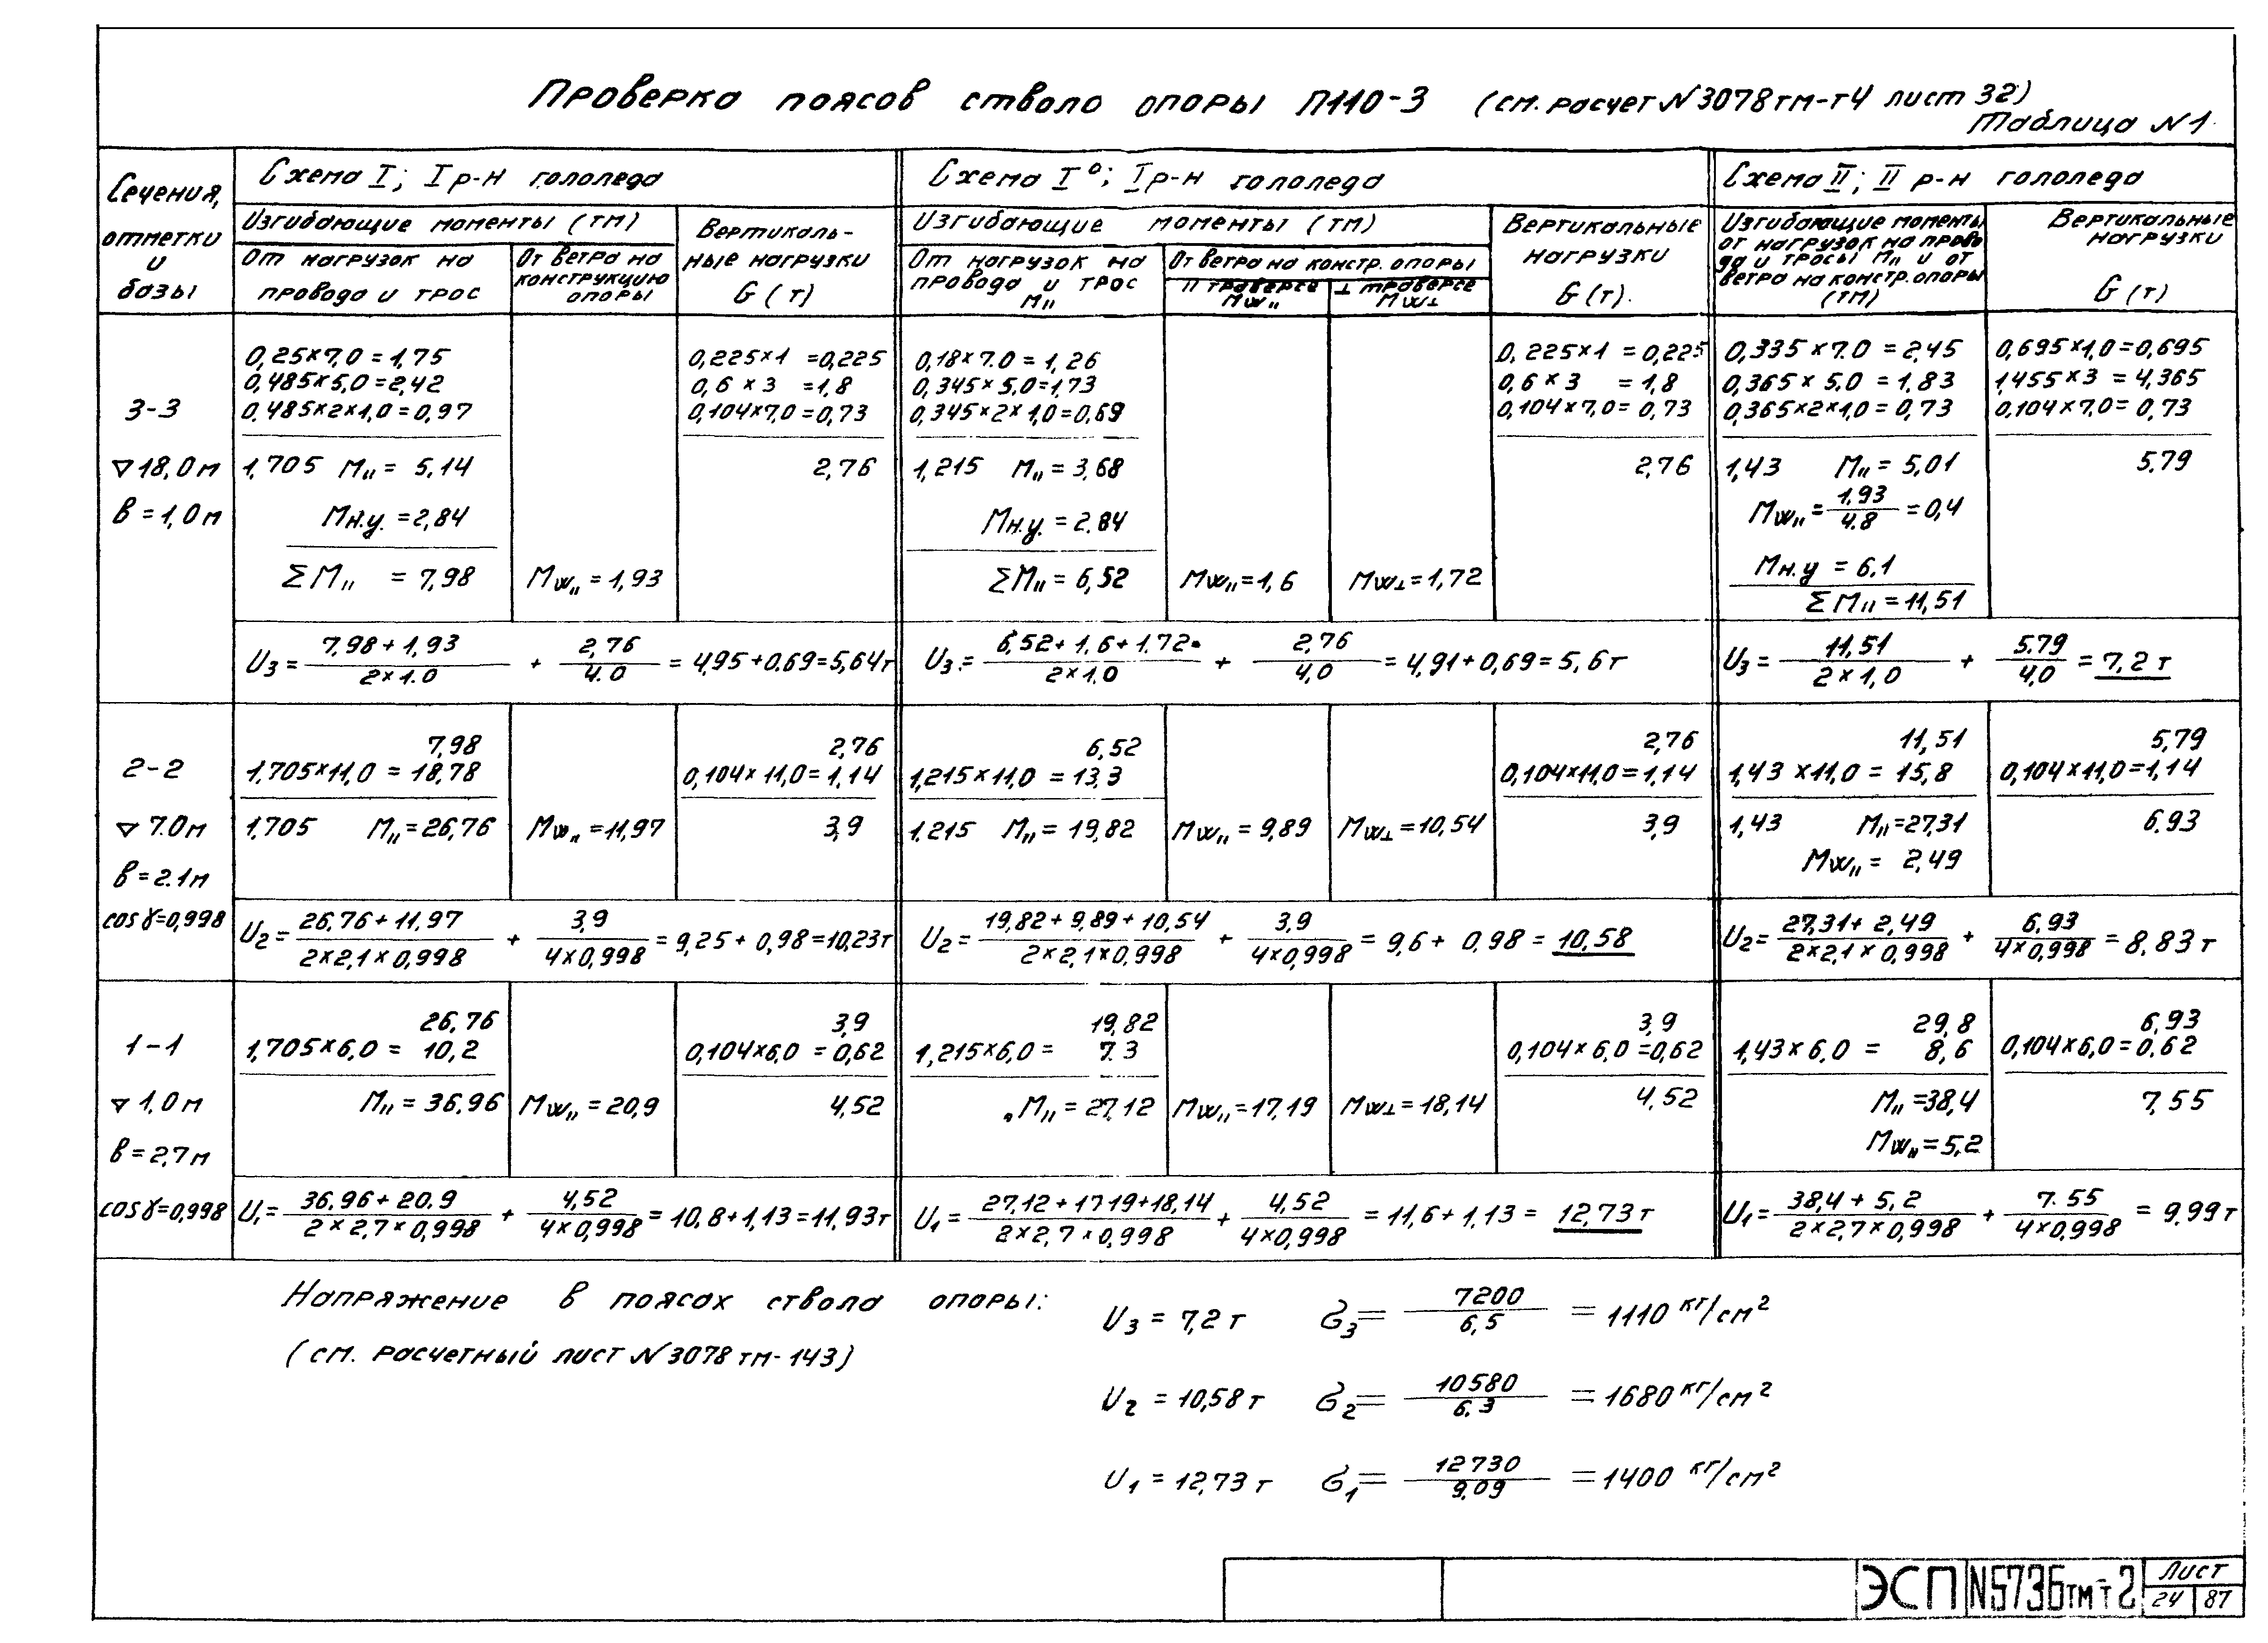 Проверка поясов ствола опоры П110-3 (см. расчет N3078тм-т4 лист 32)
Таблица N1
Сечения, отметки и базы
Схема I; I р-н гололеда
Изгибающие моменты (тм)
От нагрузок на провода и трос
От ветра на конструкцию опоры
Вертикаль-
ные нагрузки
G (т)
Схема I⁰; I р-н гололеда
Изгибающие моменты (тм)
От нагрузок на провода и трос M॥
От ветра на констр. опоры
॥ траверсе Mw॥
⊥ траверсе Mw⊥
Вертикальные нагрузки
G (т).
Схема II; II р-н гололеда
Изгибающие моменты
от нагрузок на прово
да и тросы M॥ и от
ветра на констр. опоры
(тм)
Вертикальные нагрузки
G (т)
3-3
▽18,0м
в=1,0м
0,25×7,0=1,75
0,485×5,0=2,42
0,485×2×1,0=0,97
1,705 M॥= 5,14
Mн.у.=2,84
ΣM॥ = 7,98
Mw॥=1,93
0,225×1 =0,225
0,6 × 3 =1,8
0,104×7,0=0,73
2,76
0,18×7.0=1,26
0,345×5,0=1,73
0,345×2×1,0=0,69
1,215 M॥=3,68
Mн.у.=2.84
ΣM॥=6,52
Mw॥=1,6
Mw⊥=1,72
0,225×1 =0,225
0,6×3 =1,8
0,104×7,0= 0,73
2,76
0,335×7.0 =2,45
0,365×5.0 =1,83
0,365×2×1,0= 0,73
1,43 M॥= 5,01
Mw॥= 1,93/4.8 =0,4
Mн.у = 6,1
ΣM॥=11,51
0,695×1,0=0,695
1,455×3 = 4,365
0,104×7,0= 0,73
5.79
U3= 7,98+1,93/2×1.0 + 2,76/4.0 = 4,95+0.69=5,64т
U3= 6,52+1,6+1.72/2×1,0 + 2,76/4,0 =4,91+0,69=5,6т
U3= 11,51/2×1,0 + 5.79/4,0 =7,2т
2-2
▽7.0м
в=2.1м
cosγ=0,998
7,98
1,705×11,0 = 18,78
1,705 M॥=26,76
Mw॥=11,97
2,76
0,104×11,0=1,14
3,9
6,52
1,215×11,0 =13,3
1.215 M॥= 19,82
Mw॥= 9,89
Mw⊥=10,54
2,76
0,104×11,0=1,14
3,9
11,51
1,43×11,0= 15,8
1,43 M॥=27,31
Mw॥= 2,49
5,79
0,104×11,0=1,14
6.93
U2= 26,76+11,97/2×2,1×0,998 + 3,9/4×0,998 =9,25+0,98=10,23т
U2= 19,82+9,89+10,54/2×2,1×0,998 + 3,9/4×0,998 = 9,6+ 0,98 = 10,58
U2= 27,31+2,49/2×2,1×0,998 + 6,93/4×0,998 = 8,83т
1-1
▽1,0м
в=2,7м
cosγ=0,998
26,76
1,705×6,0= 10,2
M॥=36,96
Mw॥=20,9
3,9
0,104×6,0 =0,62
4,52
19,82
1,215×6,0= 7.3
M॥=27,12
Mw॥=17,19
Mw⊥=18,14
3,9
0,104×6,0=0,62
4,52
29,8
1,43×6,0 = 8,6
M॥=38,4
Mw॥=5,2
6,93
0,104×6,0=0,62
7,55
U1= 36,96+20,9/2×2,7×0,998 + 4,52/4×0,998 =10,8+1,13=11,93т
U1= 27,12+17,19+18,14/2×2,7×0,998 + 4,52/4×0,998 =11,6+1,13= 12,73т
U1= 38,4+5,2/2×2,7×0,998 + 7.55/4×0,998 = 9,99т
Напряжение в поясах ствола опоры:
(см. расчетный лист N3078тм-143)
U3 = 7,2т σ3= 7200/6,5 = 1110 кг/см²
U2 = 10,58т σ2= 10580/6.3 = 1680 кг/см²
U1 = 12,73т σ1= 12730/9,09 = 1400 кг/см²
ЭСП N5736тм-т2 Лист 24 87